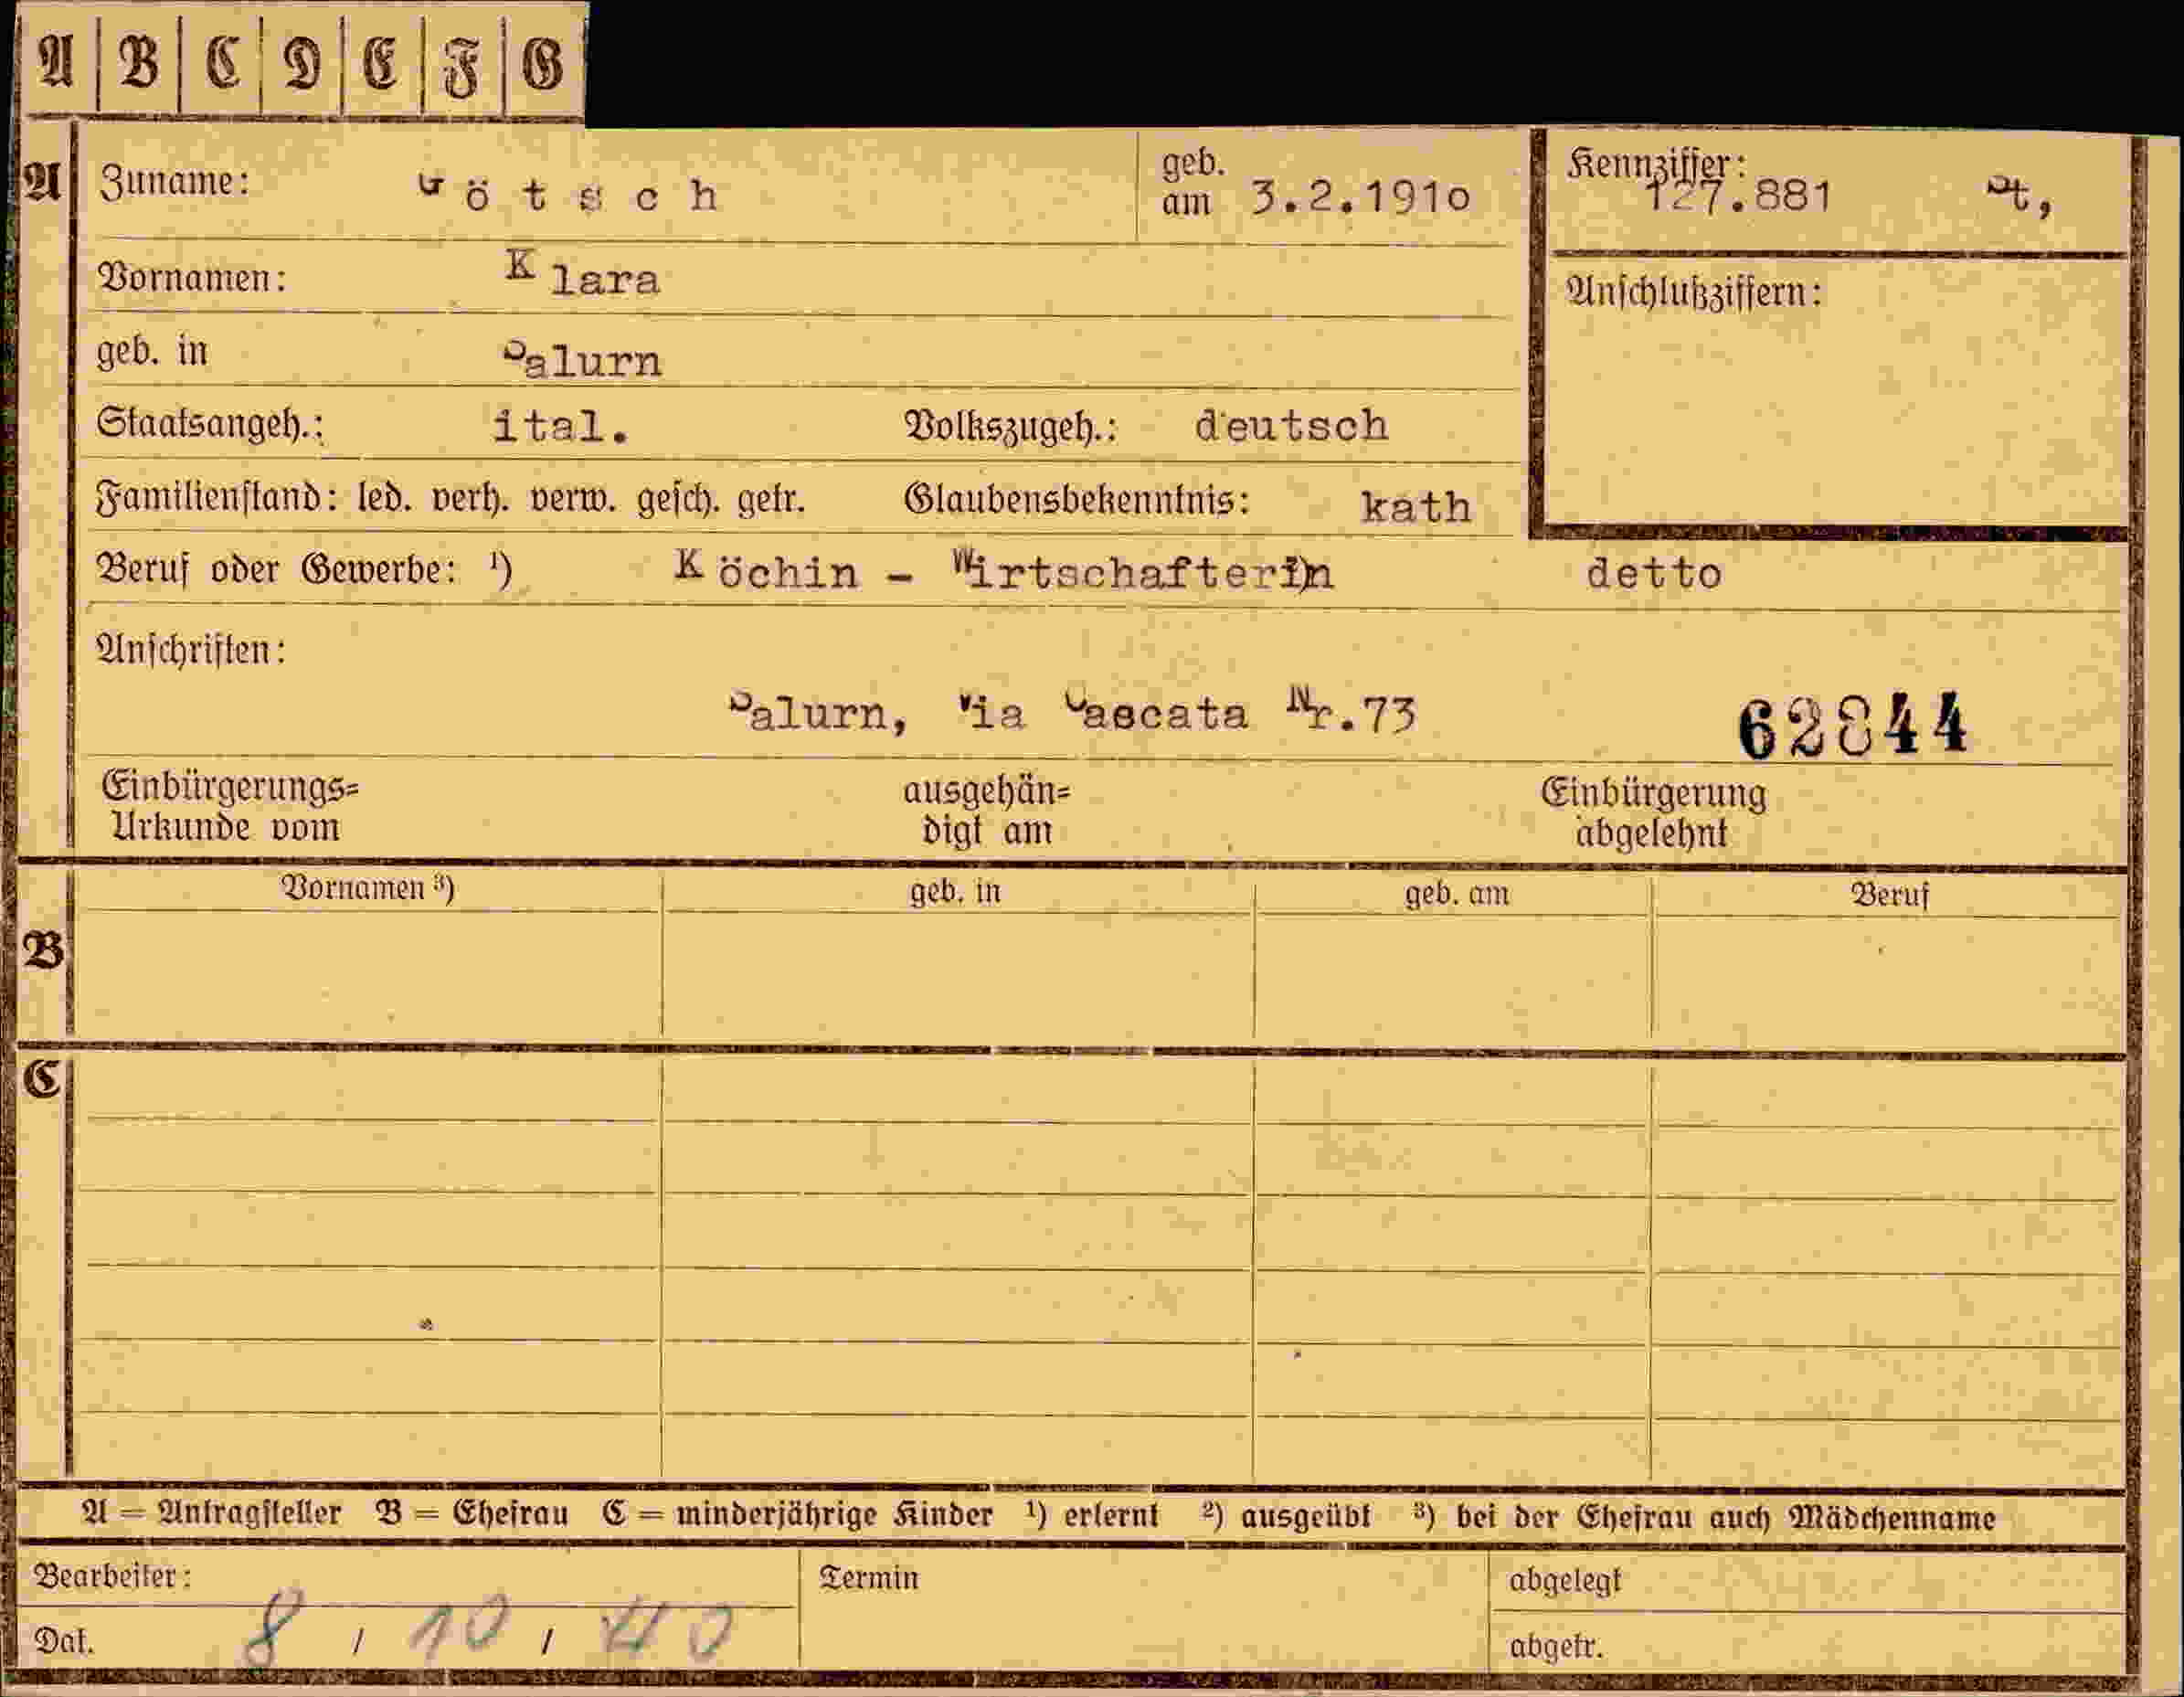 A B C D E F G
A Zuname: Götsch geb. am 3.2.1910 Kennziffer: 127.881 St,
Vornamen: Klara Anschlußziffern:
geb. in Salurn
Staatsangeh.: ital. Volkszugeh.: deutsch
Familienstand: led. verh. verw. gesch. getr. Glaubensbekenntnis: kath
Beruf oder Gewerbe: ¹) Köchin - Wirtschafterin detto
Anschriften:
Salurn, Via Cascata Nr.73 62844
Einbürgerungs= ausgehän= Einbürgerung
Urkunde vom digt am abgelehnt
Vornamen ³) geb. in geb. am Beruf
B
C
A = Antragsteller B = Ehefrau C = minderjährige Kinder ¹) erlernt ²) ausgeübt ³) bei der Ehefrau auch Mädchenname
Bearbeiter: Termin abgelegt
Dat. 8 / 10 / 40 abgetr.